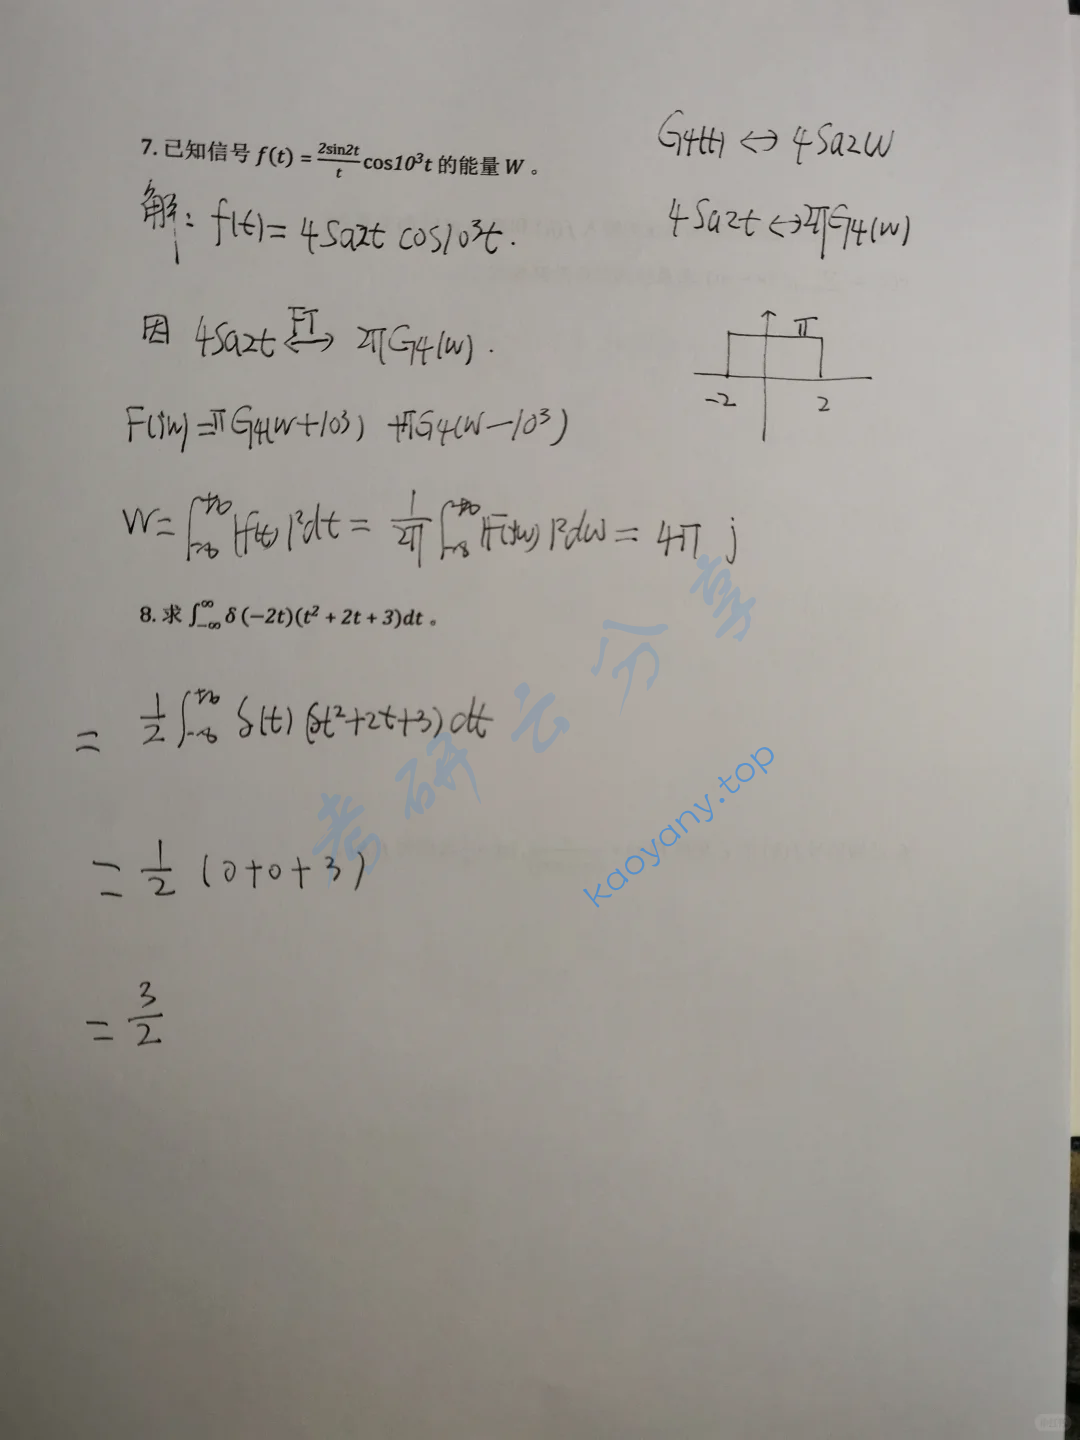 7. 已知信号 f(t) = 2sin2t/t cos10³t 的能量 W 。
G4(t) ↔ 4Sa2w
解: f(t) = 4Sa2t cos10³t.
4Sa2t ↔ 2πG4(w)
因 4Sa2t FT↔ 2πG4(w).
π
-2 2
F(jw) = πG4(w+10³) + πG4(w-10³)
W = ∫_{-∞}^{+∞} |f(t)|²dt = 1/2π ∫_{-∞}^{+∞} |F(jw)|²dw = 4π j
8. 求 ∫_{-∞}^{∞} δ(-2t)(t² + 2t + 3)dt 。
= 1/2 ∫_{-∞}^{+∞} δ(t) (t²+2t+3) dt
= 1/2 (0+0+3)
= 3/2
考研云分享
kaoyany.top